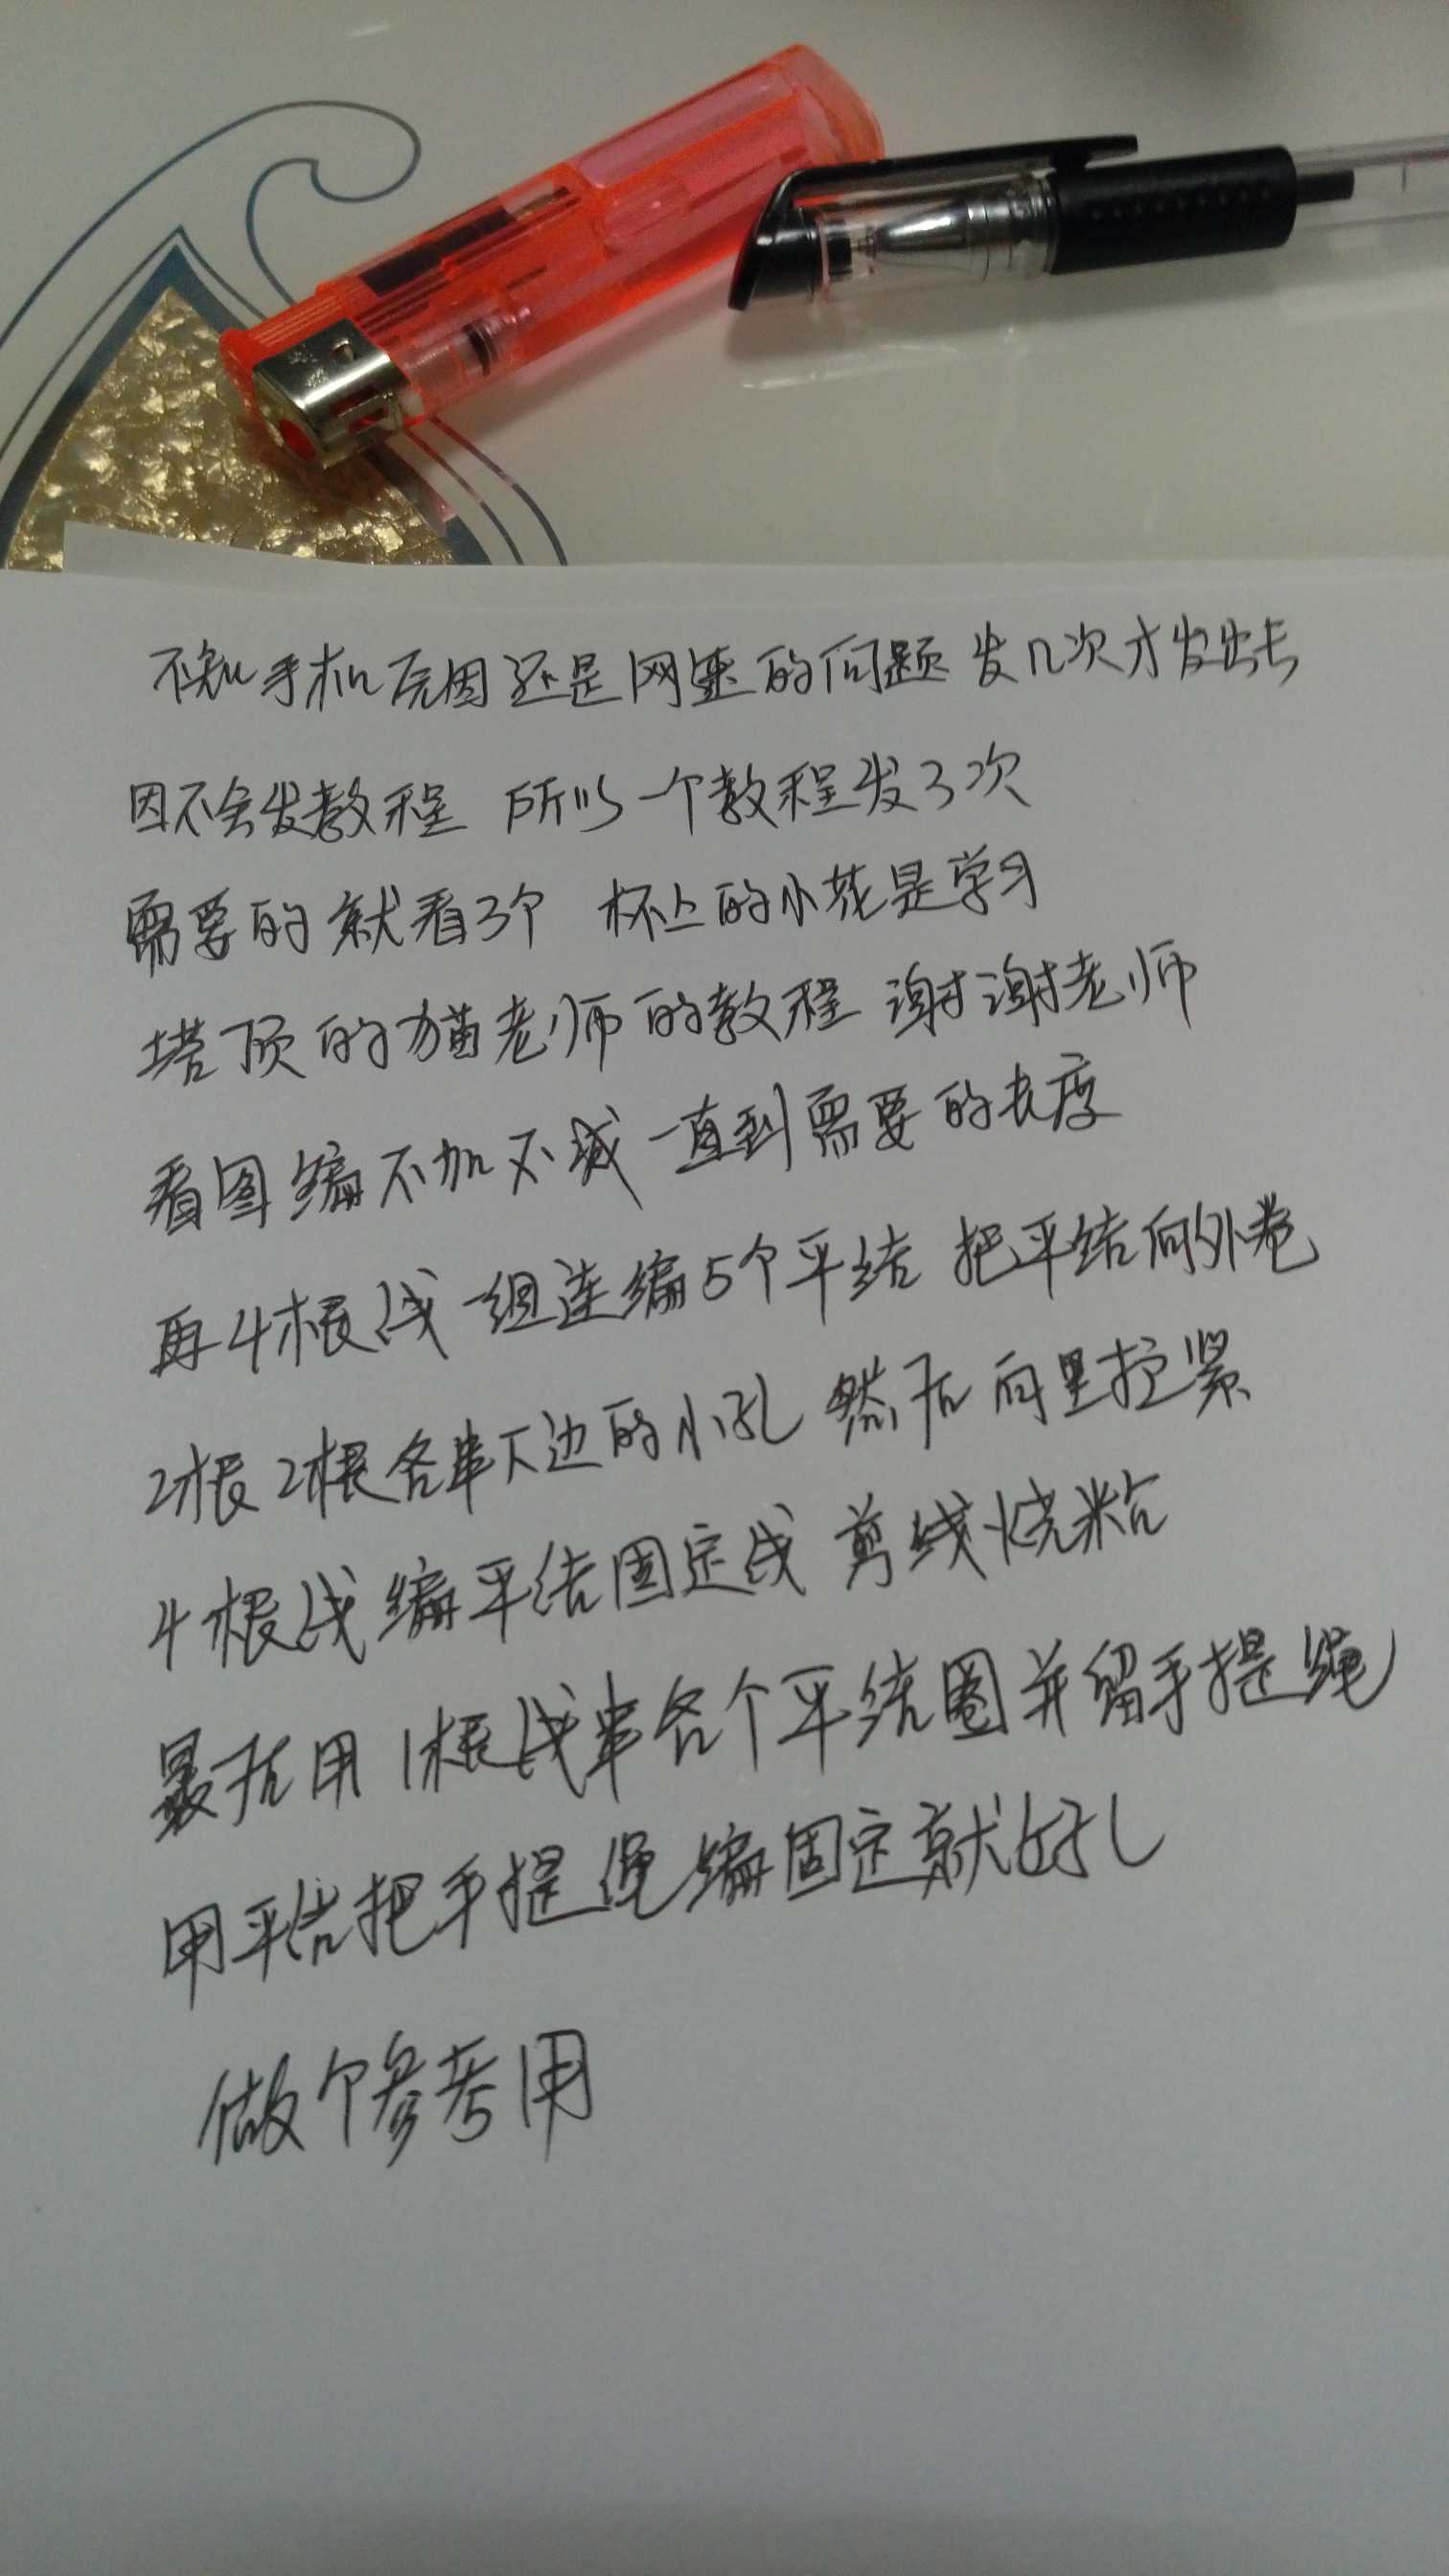 不知手机原因还是网速的问题 发几次才发出去
因不会发教程 所以一个教程发了3次
需要的就看3个 杯上的小花是学习
塔顶的猫老师的教程 谢谢老师
看图编不加不减一直到需要的长度
再4根线一组连编5个平结 把平结向外卷
2根2根各串下边的小孔 然后向里拉紧
4根线编平结固定线 剪线烧粘
最后用1根线串各个平结圈并留手提绳
用平结把手提绳编固定就好了
做个参考用